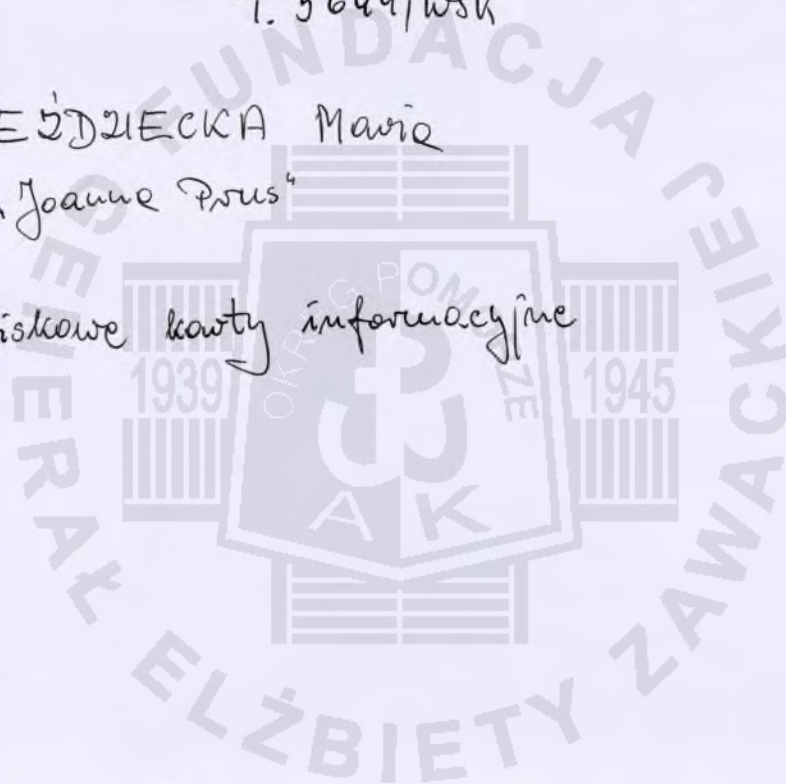 EŹDZIECKA Maria
„Joanna Prus"
iskowe karty informacyjne
FUNDACJA GENERAŁ ELŻBIETY ZAWACKIEJ
OKRĘG POMORZE
1939 1945
A K